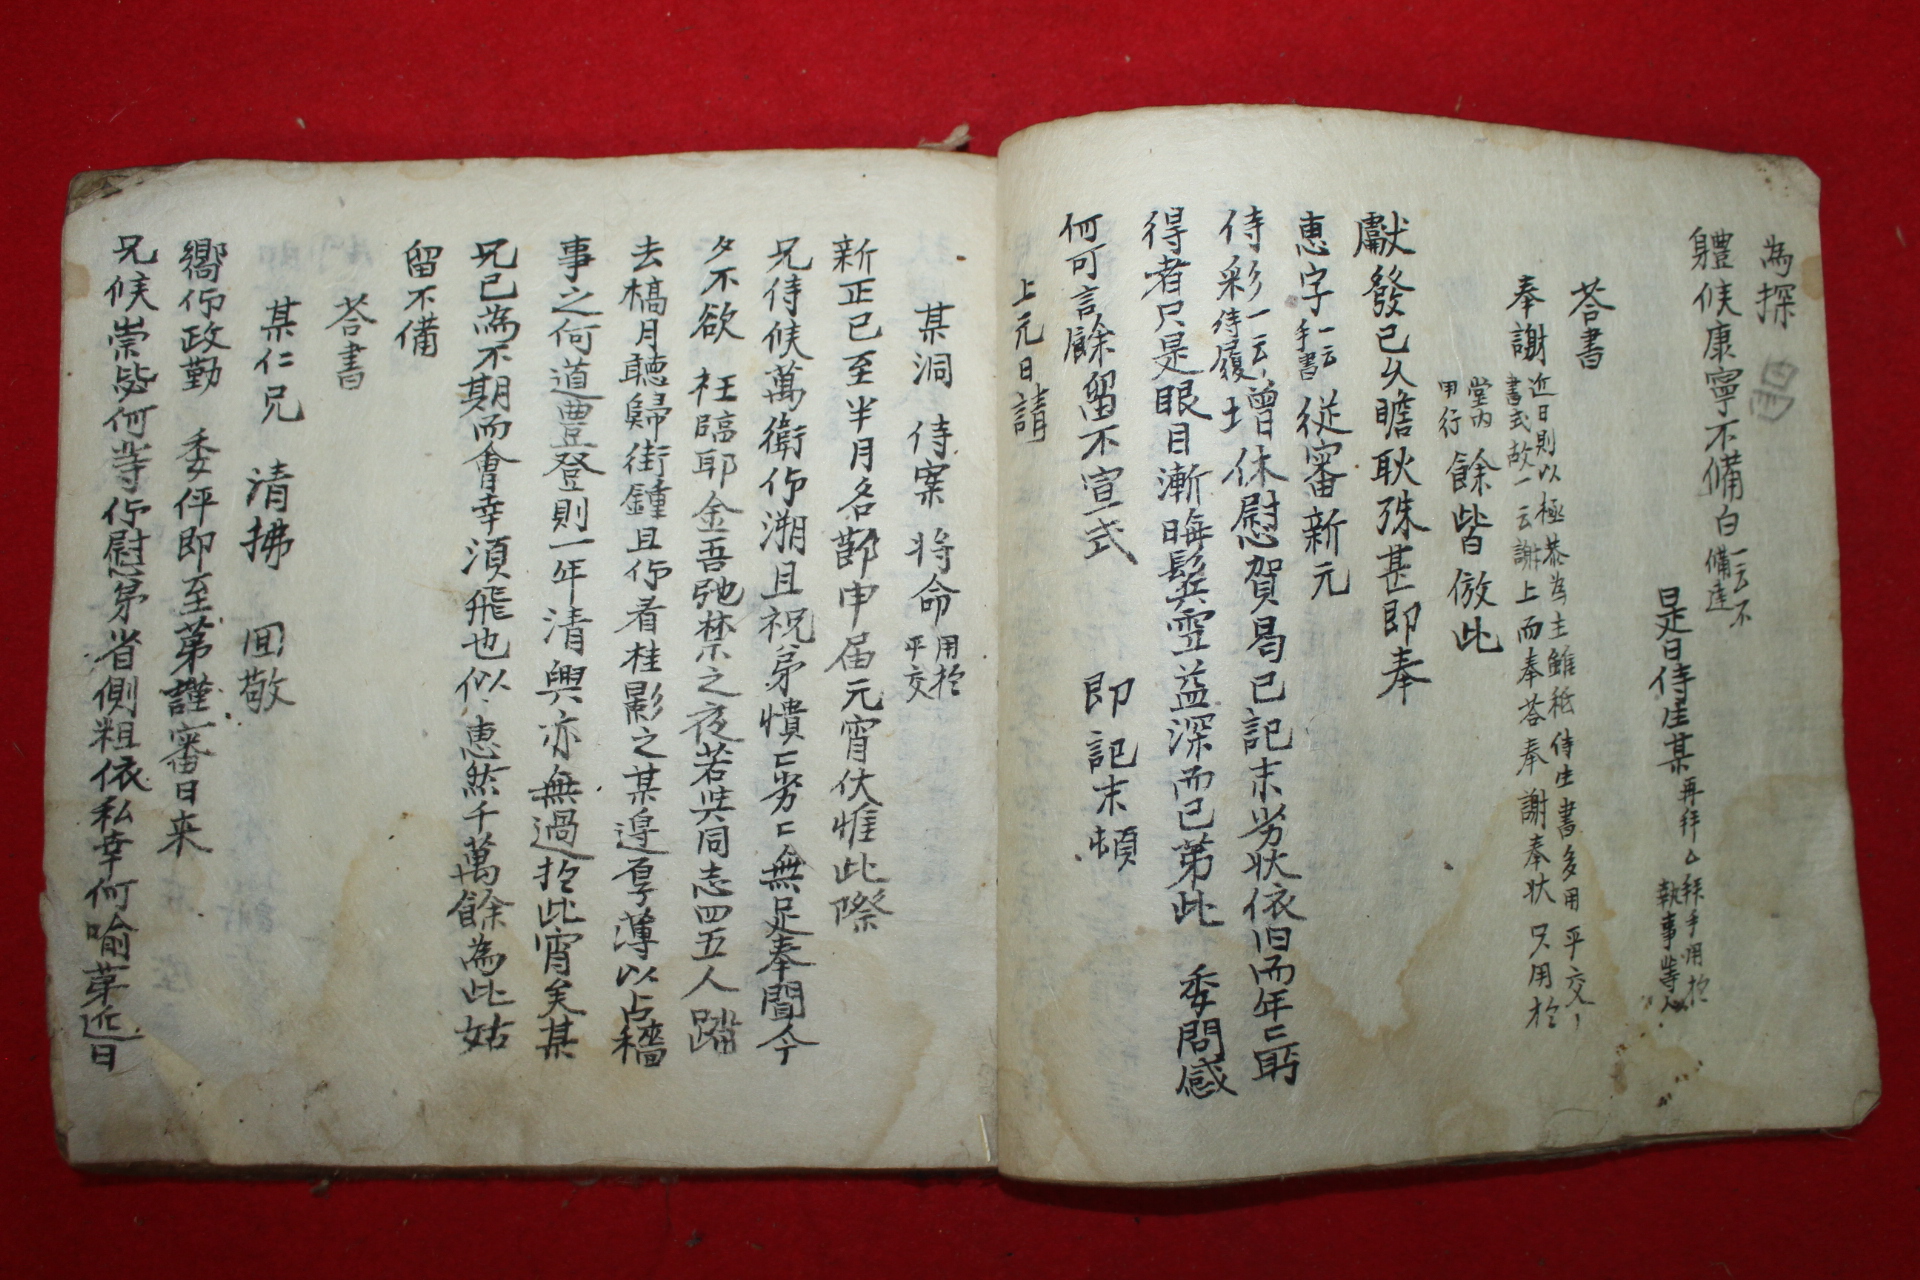 為探
體候康寧不備白一云不備達
是日侍生某再拜拜手用於執事等人
答書
奉謝近日則以極恭為主雖秪侍生書多用平交書式故一云謝上而奉答奉謝奉狀只用於堂內甲行餘皆倣此
獻發已久瞻耿殊甚即奉
惠字一云手書從審新元
侍彩一云侍履增休慰賀曷已記末劣狀依旧而年
得者只是眼目漸晦鬂雪益深而已第此委問感
何可言餘留不宣式即記末頓
上元日請
某洞侍案將命用於平交
新正已至半月名節申届元宵伏惟此際
兄侍候萬衛仰溯且祝弟憒劣無足奉聞今
夕不欲枉臨耶金吾弛禁之夜若共同志四五人踏
去橋月聽歸街鐘且仰看桂影之某邉厚薄以占穡
事之何道豊登則一年清興亦無過於此宵矣某
兄已為不期而會幸須飛也似惠然千萬餘為此姑
留不備
答書
某仁兄清拂回敬
嚮仰政勤委伻即至第謹審日来
兄候崇毖何等仰慰弟省側粗依私幸何喻第近日